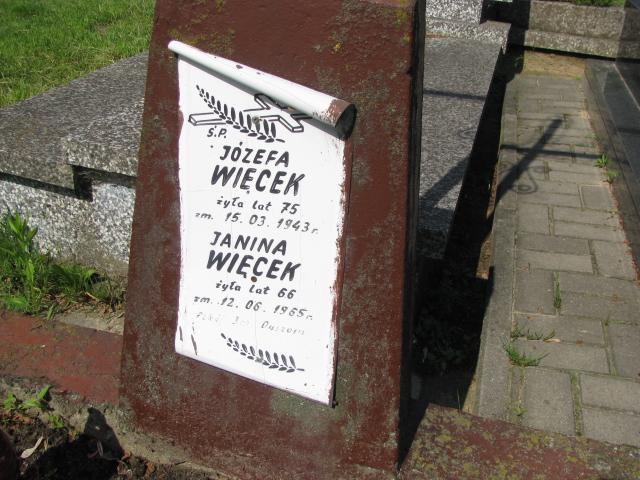 Ś.P.
JÓZEFA
WIĘCEK
żyła lat 75
zm. 15.03.1943 r.
JANINA
WIĘCEK
żyła lat 66
zm. 12.06.1965 r.
Duszom